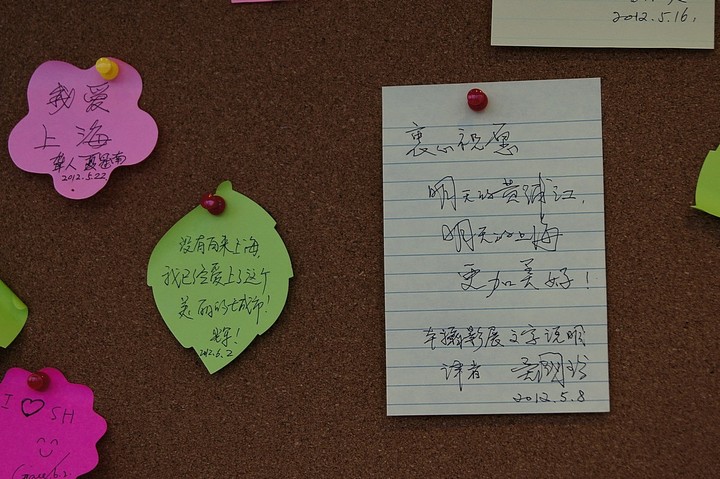 2012.5.16.
我爱
上海
华人
2012.5.22
没有再来上海,
我已经爱上了这个
美丽的城市!
2012.6.2
I ♡ SH
衷心祝愿
明天的黄浦江,
明天的上海
更加美好!
本摄影展文字说明
译者
2012.5.8